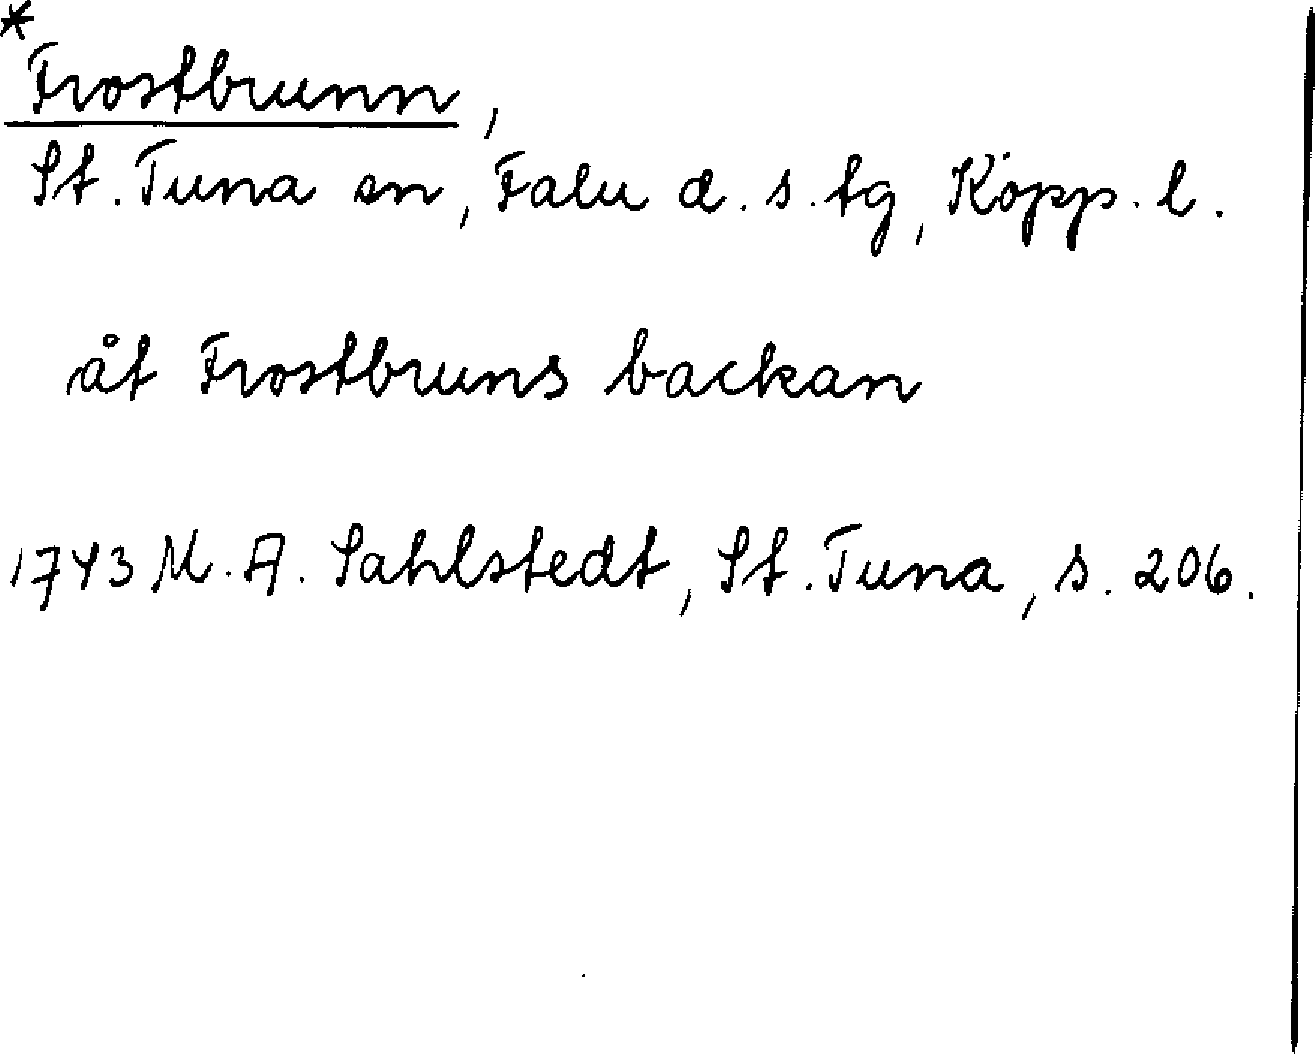 *
Frostbrunn,
St. Tuna sn, Falu d. s. tg, Kopp. l.
åt Frostbruns backan
1743 M. A. Sahlstedt, St. Tuna, s. 206.